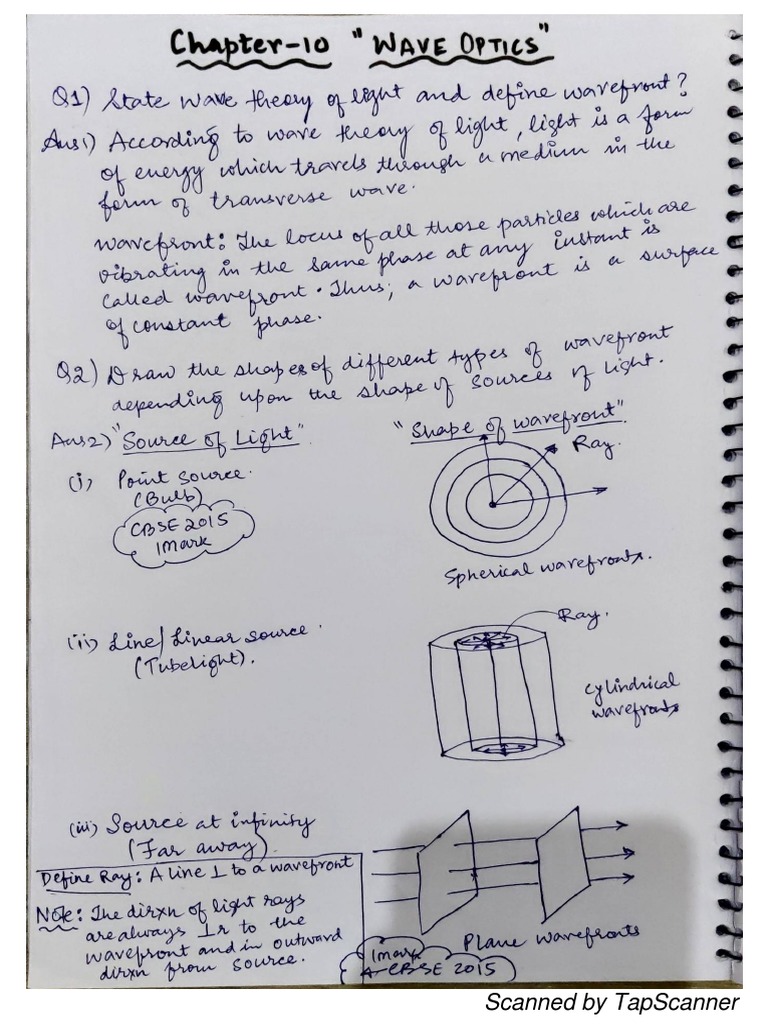 Chapter-10 "WAVE OPTICS"
Q1) State wave theory of light and define wavefront?
Ans1) According to wave theory of light, light is a form
of energy which travels through a medium in the
form of transverse wave.
Wavefront: The locus of all those particles which are
vibrating in the same phase at any instant is
called wavefront. Thus, a wavefront is a surface
of constant phase.
Q2) Draw the shapes of different types of wavefront
depending upon the shape of sources of light.
Ans2) "Source of Light"
"Shape of wavefront"
(i) Point source.
(Bulb)
CBSE 2015
1 Mark
Ray.
Spherical wavefronts.
(ii) Line/Linear source.
(Tubelight).
Ray.
Cylindrical
wavefronts
(iii) Source at infinity
(Far away)
Define Ray: A line ⊥ to a wavefront
Note: The dirxn of light rays
are always ⊥r to the
wavefront and in outward
dirxn from source.
Plane wavefronts
1mark
CBSE 2015
Scanned by TapScanner